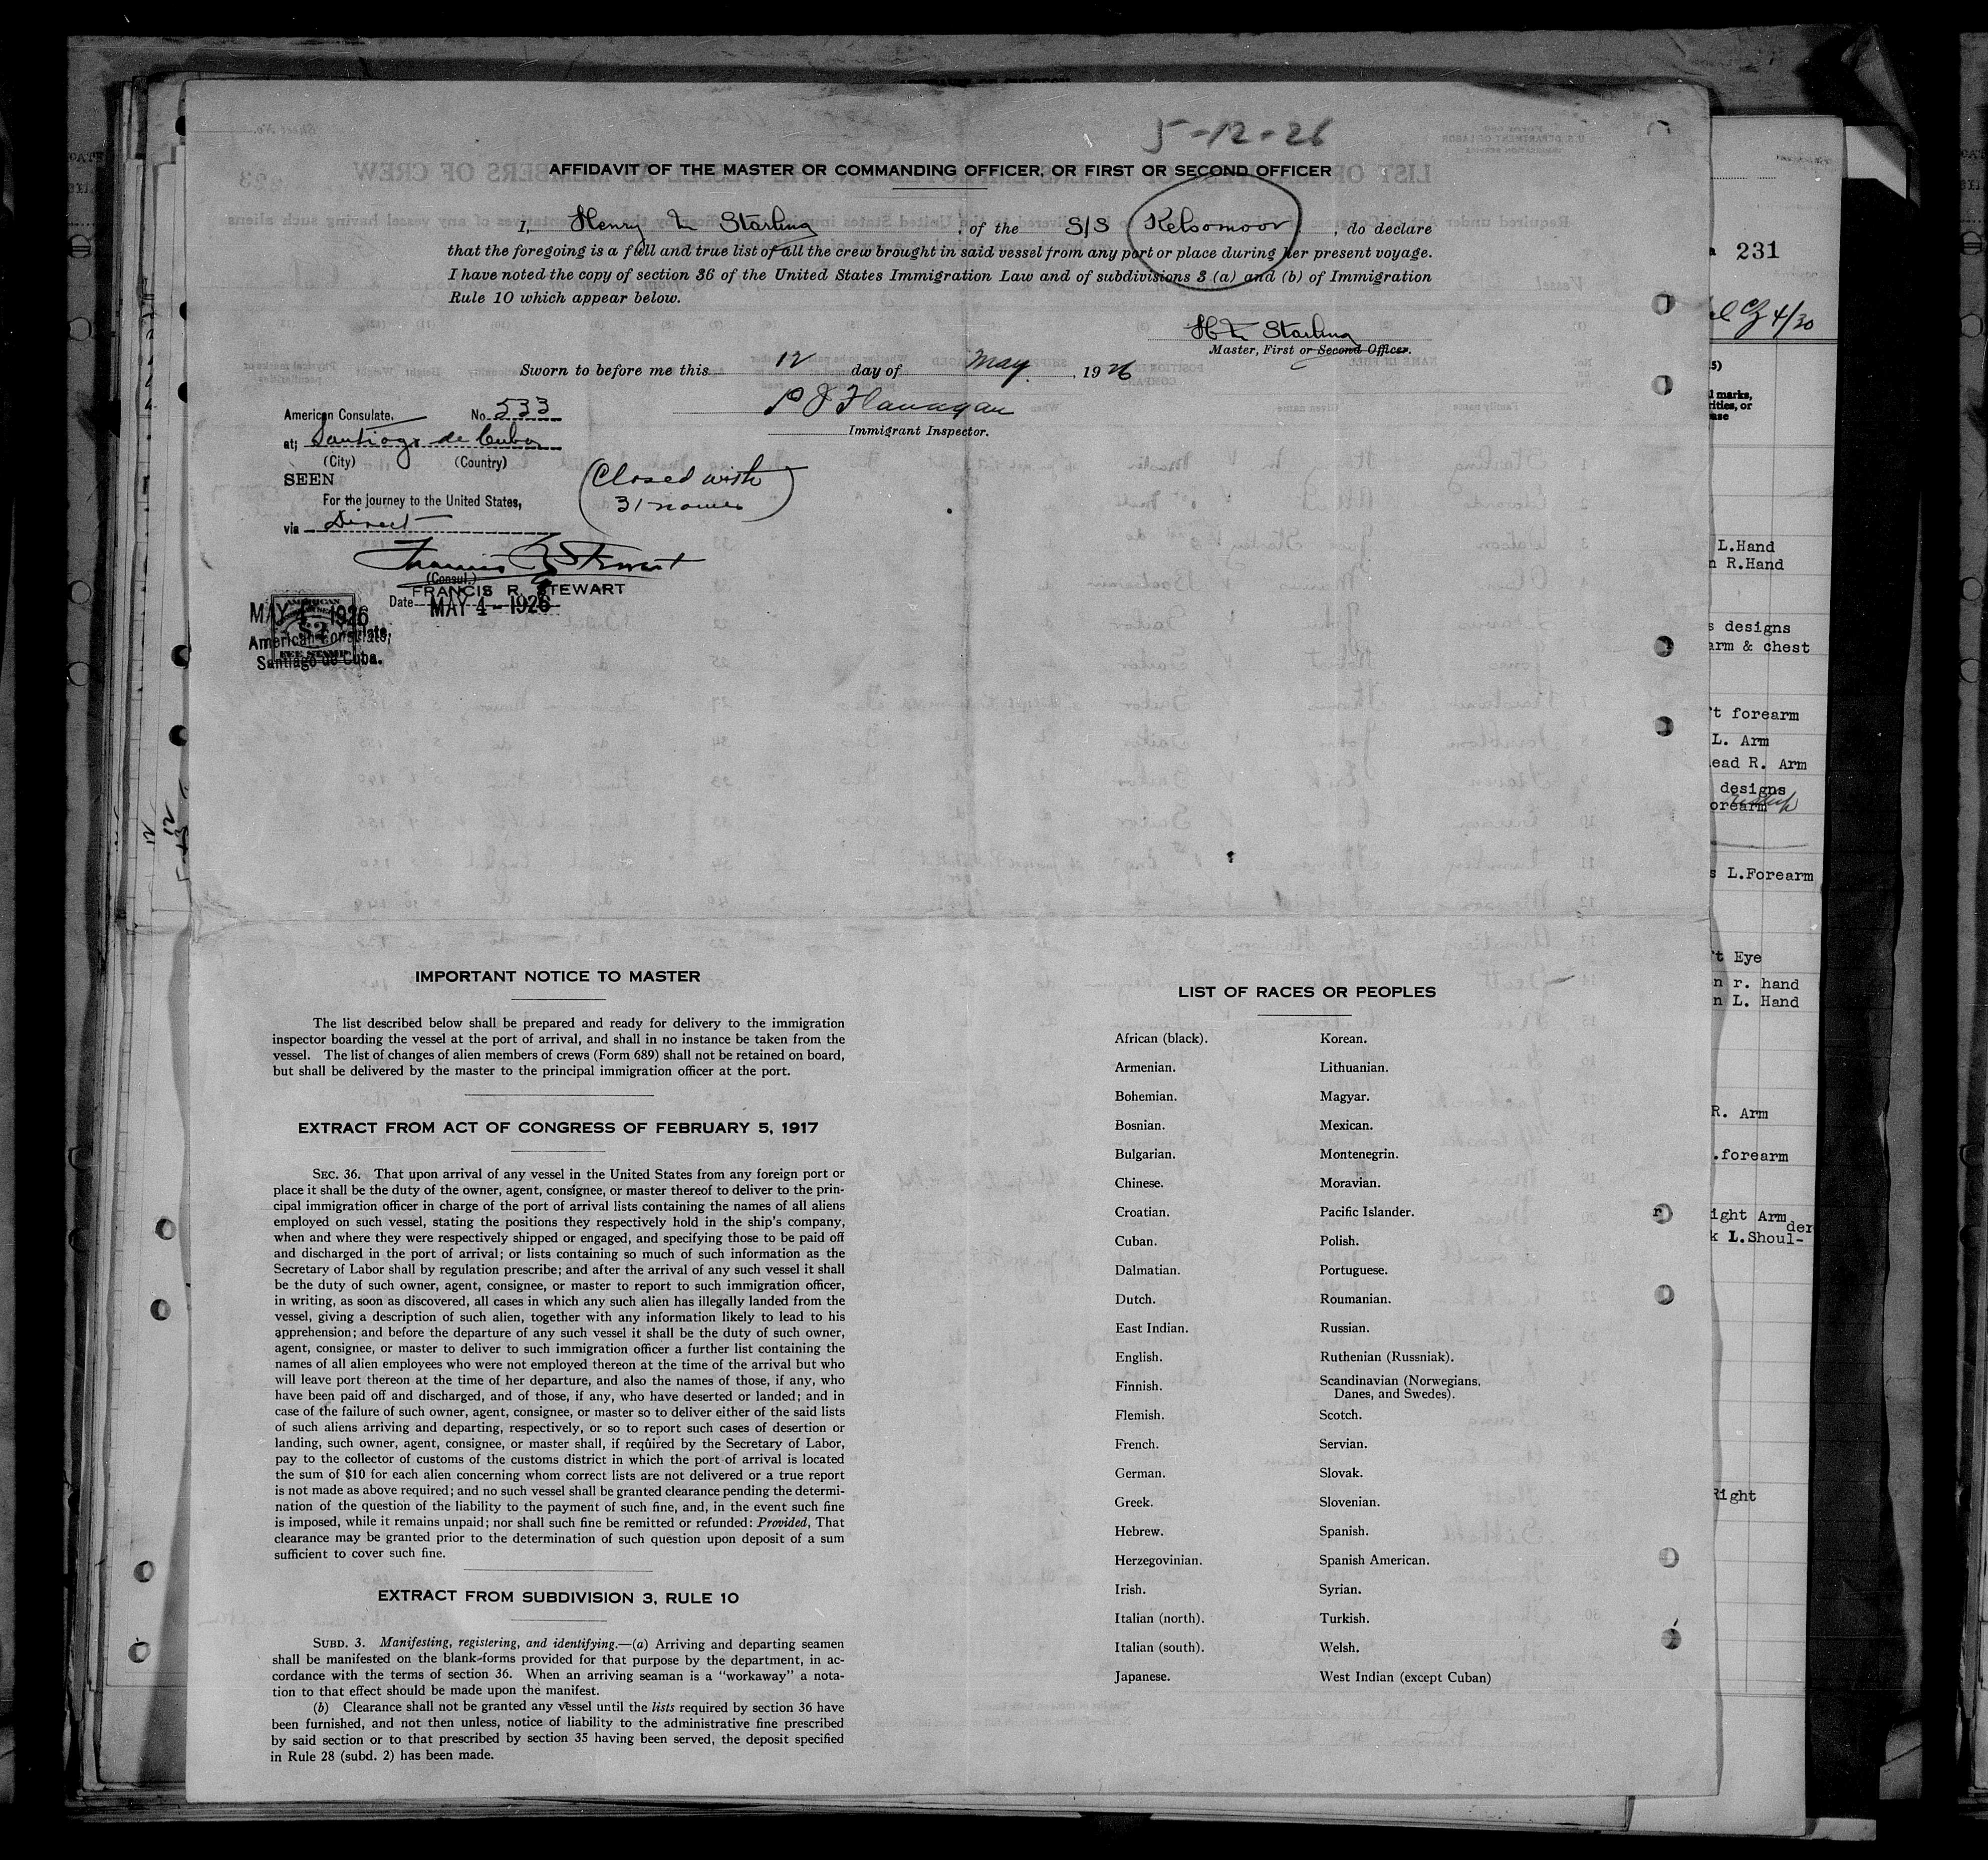 5-12-26
AFFIDAVIT OF THE MASTER OR COMMANDING OFFICER, OR FIRST OR SECOND OFFICER
I, Henry Starling, of the S/S Kelsomoor, do declare
that the foregoing is a full and true list of all the crew brought in said vessel from any port or place during her present voyage.
I have noted the copy of section 36 of the United States Immigration Law and of subdivisions 3 (a) and (b) of Immigration
Rule 10 which appear below.
Starling
Master, First or Second Officer.
Sworn to before me this 12 day of May, 1926
P J Flanagan
Immigrant Inspector.
American Consulate. No. 533
at; Santiago de Cuba
(City) (Country)
SEEN
For the journey to the United States,
via Direct
(Closed with
31 names)
Francis R Stewart
(Consul.)
FRANCIS R. STEWART
Date MAY 4 - 1926
MAY 4 1926
AMERICAN
$2
FEE STAMP
American Consulate,
Santiago de Cuba.
IMPORTANT NOTICE TO MASTER
The list described below shall be prepared and ready for delivery to the immigration
inspector boarding the vessel at the port of arrival, and shall in no instance be taken from the
vessel. The list of changes of alien members of crews (Form 689) shall not be retained on board,
but shall be delivered by the master to the principal immigration officer at the port.
EXTRACT FROM ACT OF CONGRESS OF FEBRUARY 5, 1917
SEC. 36. That upon arrival of any vessel in the United States from any foreign port or
place it shall be the duty of the owner, agent, consignee, or master thereof to deliver to the prin-
cipal immigration officer in charge of the port of arrival lists containing the names of all aliens
employed on such vessel, stating the positions they respectively hold in the ship's company,
when and where they were respectively shipped or engaged, and specifying those to be paid off
and discharged in the port of arrival; or lists containing so much of such information as the
Secretary of Labor shall by regulation prescribe; and after the arrival of any such vessel it shall
be the duty of such owner, agent, consignee, or master to report to such immigration officer,
in writing, as soon as discovered, all cases in which any such alien has illegally landed from the
vessel, giving a description of such alien, together with any information likely to lead to his
apprehension; and before the departure of any such vessel it shall be the duty of such owner,
agent, consignee, or master to deliver to such immigration officer a further list containing the
names of all alien employees who were not employed thereon at the time of the arrival but who
will leave port thereon at the time of her departure, and also the names of those, if any, who
have been paid off and discharged, and of those, if any, who have deserted or landed; and in
case of the failure of such owner, agent, consignee, or master so to deliver either of the said lists
of such aliens arriving and departing, respectively, or so to report such cases of desertion or
landing, such owner, agent, consignee, or master shall, if required by the Secretary of Labor,
pay to the collector of customs of the customs district in which the port of arrival is located
the sum of $10 for each alien concerning whom correct lists are not delivered or a true report
is not made as above required; and no such vessel shall be granted clearance pending the determi-
nation of the question of the liability to the payment of such fine, and, in the event such fine
is imposed, while it remains unpaid; nor shall such fine be remitted or refunded: Provided, That
clearance may be granted prior to the determination of such question upon deposit of a sum
sufficient to cover such fine.
EXTRACT FROM SUBDIVISION 3, RULE 10
SUBD. 3. Manifesting, registering, and identifying.—(a) Arriving and departing seamen
shall be manifested on the blank forms provided for that purpose by the department, in ac-
cordance with the terms of section 36. When an arriving seaman is a "workaway" a nota-
tion to that effect should be made upon the manifest.
(b) Clearance shall not be granted any vessel until the lists required by section 36 have
been furnished, and not then unless, notice of liability to the administrative fine prescribed
by said section or to that prescribed by section 35 having been served, the deposit specified
in Rule 28 (subd. 2) has been made.
LIST OF RACES OR PEOPLES
African (black).
Armenian.
Bohemian.
Bosnian.
Bulgarian.
Chinese.
Croatian.
Cuban.
Dalmatian.
Dutch.
East Indian.
English.
Finnish.
Flemish.
French.
German.
Greek.
Hebrew.
Herzegovinian.
Irish.
Italian (north).
Italian (south).
Japanese.
Korean.
Lithuanian.
Magyar.
Mexican.
Montenegrin.
Moravian.
Pacific Islander.
Polish.
Portuguese.
Roumanian.
Russian.
Ruthenian (Russniak).
Scandinavian (Norwegians,
Danes, and Swedes).
Scotch.
Servian.
Slovak.
Slovenian.
Spanish.
Spanish American.
Syrian.
Turkish.
Welsh.
West Indian (except Cuban)
231
4/30
L.Hand
R.Hand
designs
arm & chest
forearm
L. Arm
R. Arm
designs
forearm
L.Forearm
Eye
r. hand
L. Hand
R. Arm
.forearm
Arm
der
L.Shoul-
Right